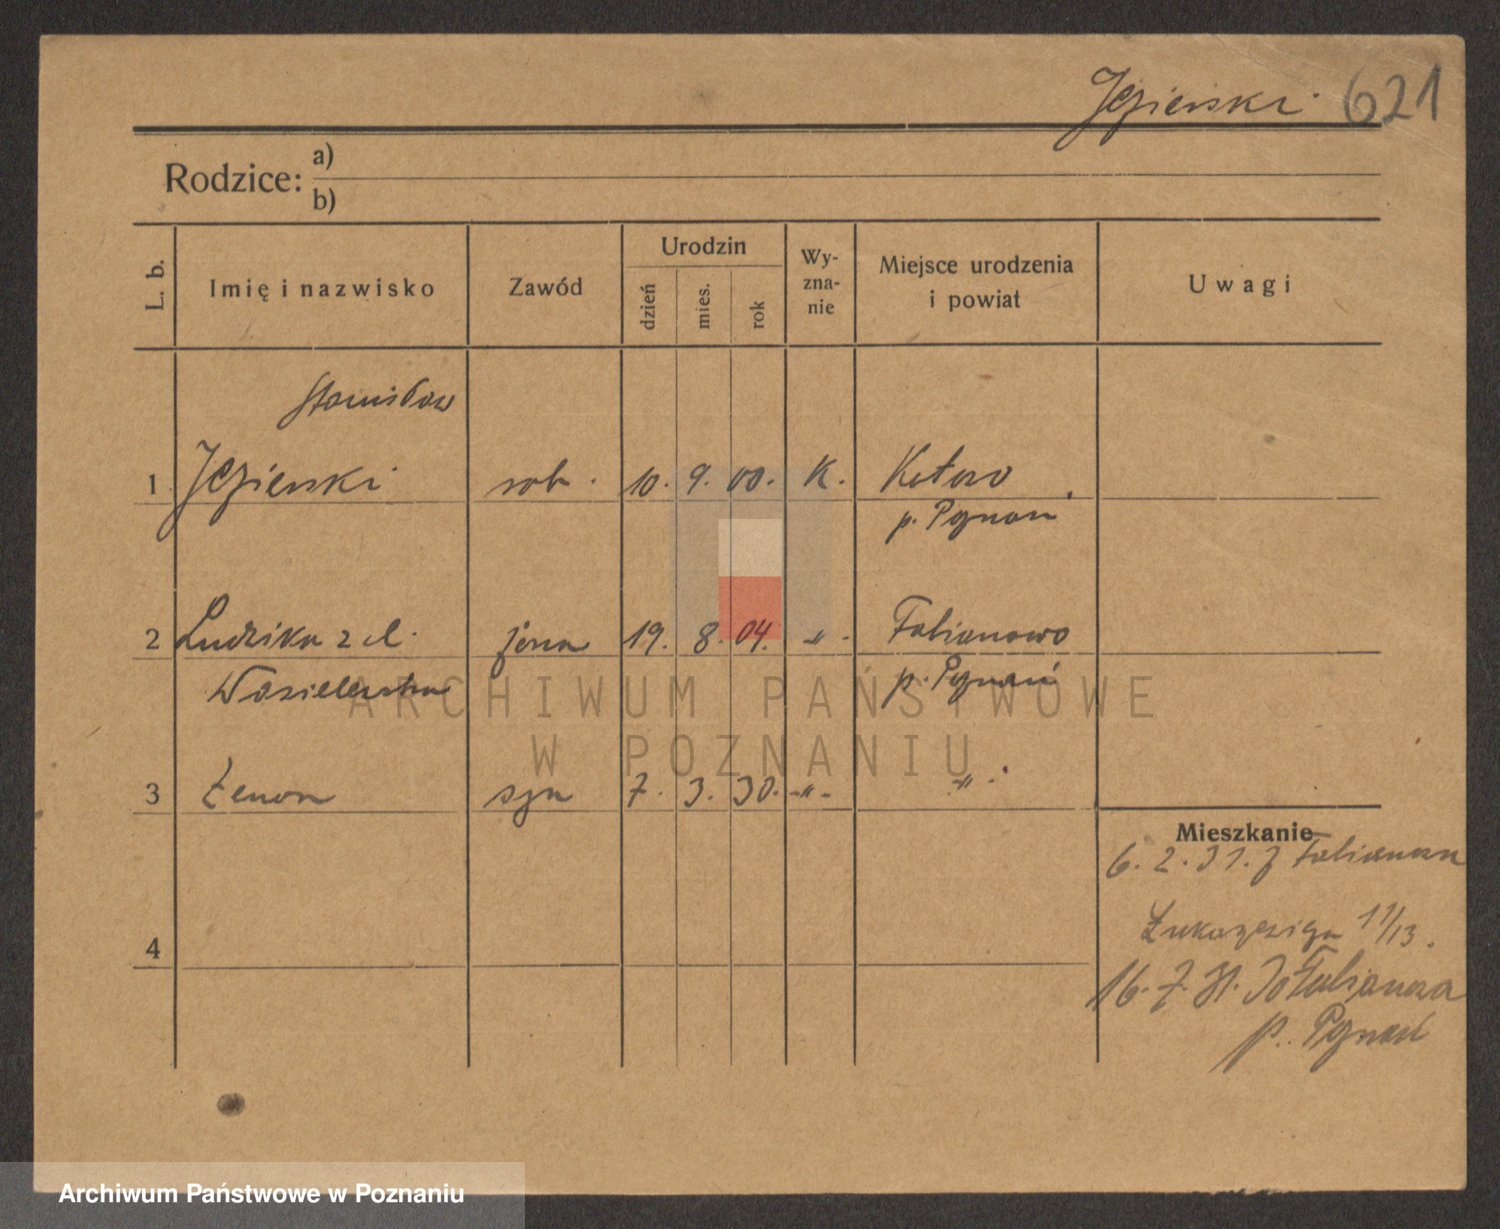 Jezierski 621
Rodzice: a)
b)
L. b.
Imię i nazwisko
Zawód
Urodzin
dzień
mies.
rok
Wy-
zna-
nie
Miejsce urodzenia
i powiat
Uwagi
Stanisław
1 Jezierski rob. 10. 9. 00. K. Kotowo
p. Poznań
2 Ludwika z d. żona 19. 8. 04. -"- Fabianowo
p. Poznań
3 Zenon syn 7. 3. 30. -"- -"-
Mieszkanie
6. 2. 31. z Fabianowa
11/13.
16. 7. 31. Do Fabianowa
p. Poznań
4
ARCHIWUM PAŃSTWOWE
W POZNANIU
Archiwum Państwowe w Poznaniu